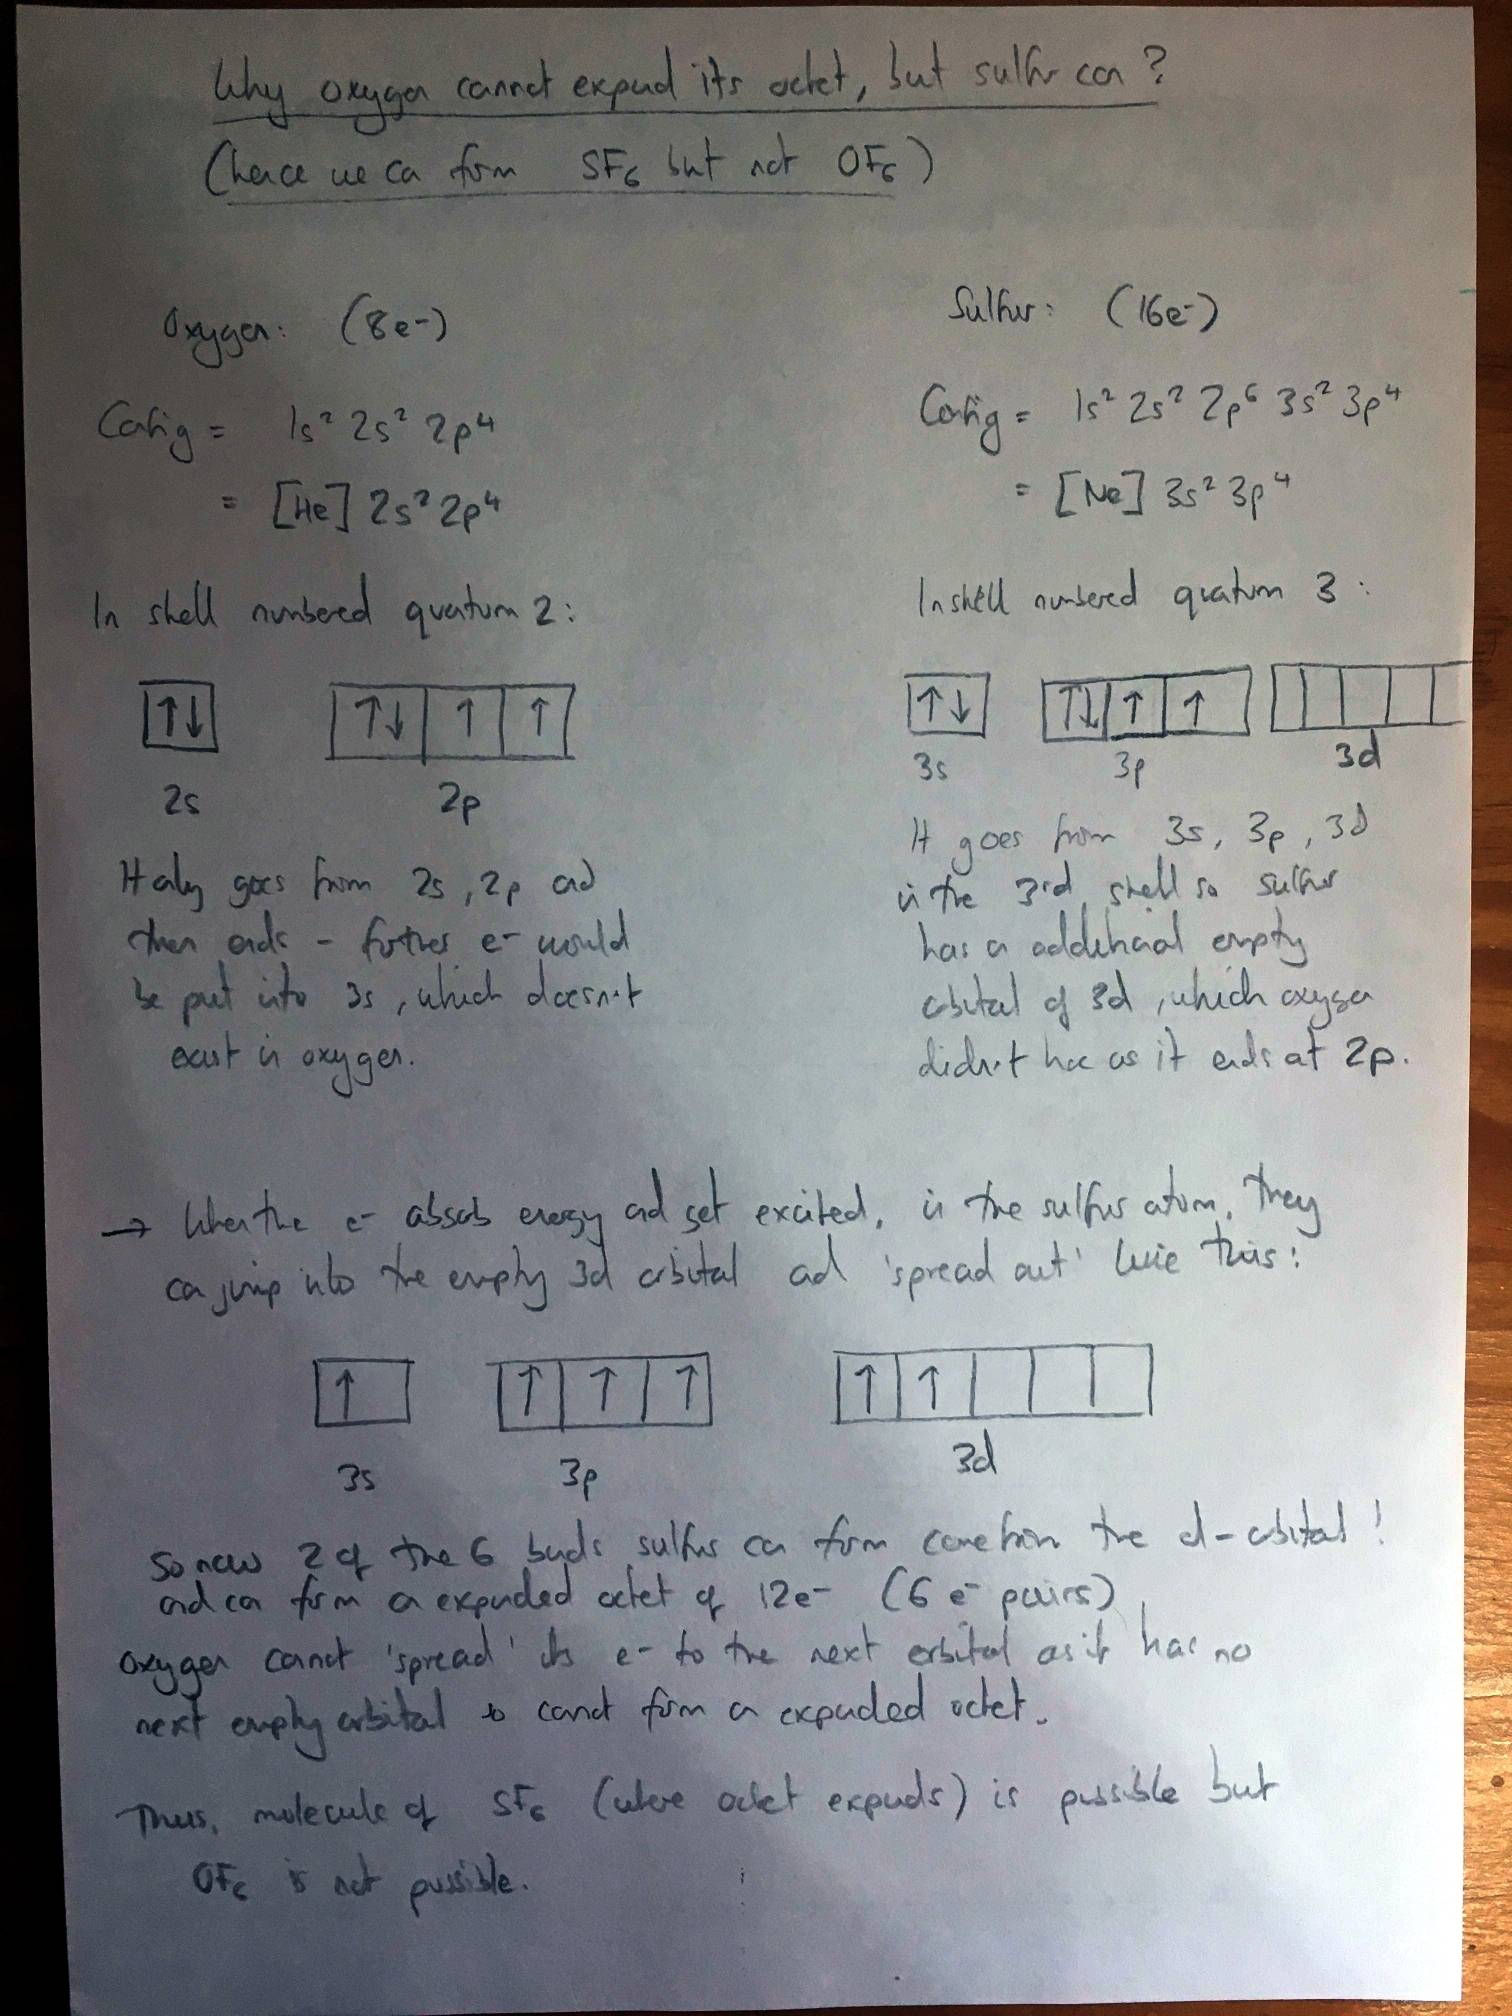 Why oxygen cannot expand its octet, but sulfur can?
(hence we can form SF₆ but not OF₆)
Oxygen: (8e-)
Config = 1s² 2s² 2p⁴
= [He] 2s² 2p⁴
In shell numbered quantum 2:
↑↓ ↑↓ ↑ ↑
2s 2p
It only goes from 2s, 2p and
then ends - further e- would
be put into 3s, which doesn't
exist in oxygen.
Sulfur: (16e-)
Config = 1s² 2s² 2p⁶ 3s² 3p⁴
= [Ne] 3s² 3p⁴
In shell numbered quantum 3:
↑↓ ↑↓ ↑ ↑
3s 3p 3d
It goes from 3s, 3p, 3d
in the 3rd shell so sulfur
has an additional empty
orbital of 3d, which oxygen
didn't have as it ends at 2p.
→ When the e- absorb energy and get excited, in the sulfur atom, they
can jump into the empty 3d orbital and 'spread out' like this:
↑ ↑ ↑ ↑ ↑ ↑
3s 3p 3d
So now 2 of the 6 bonds sulfur can form come from the d-orbital!
and can form an expanded octet of 12e- (6 e- pairs)
Oxygen cannot 'spread' its e- to the next orbital as it has no
next empty orbital so cannot form an expanded octet.
Thus, molecule of SF₆ (where octet expands) is possible but
OF₆ is not possible.